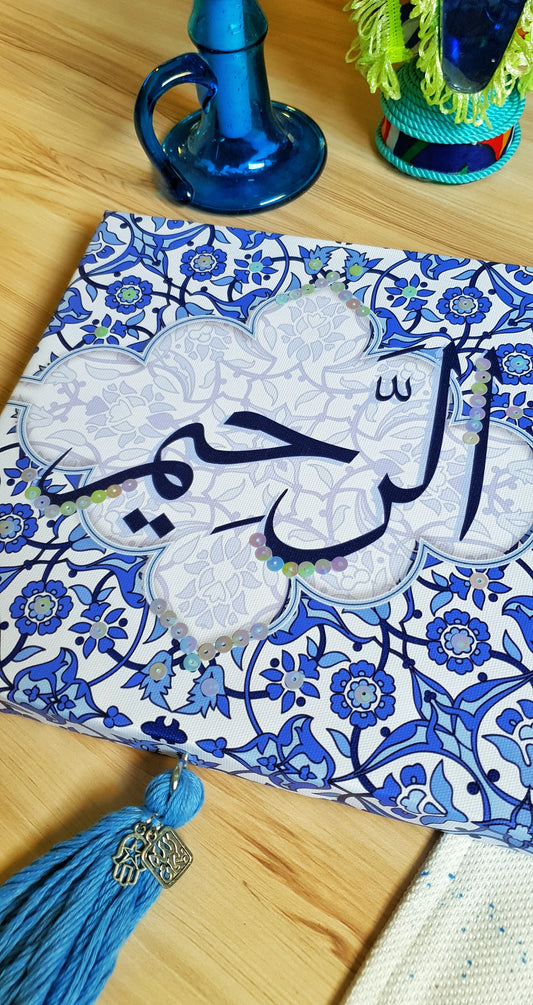 الرَّحِيم